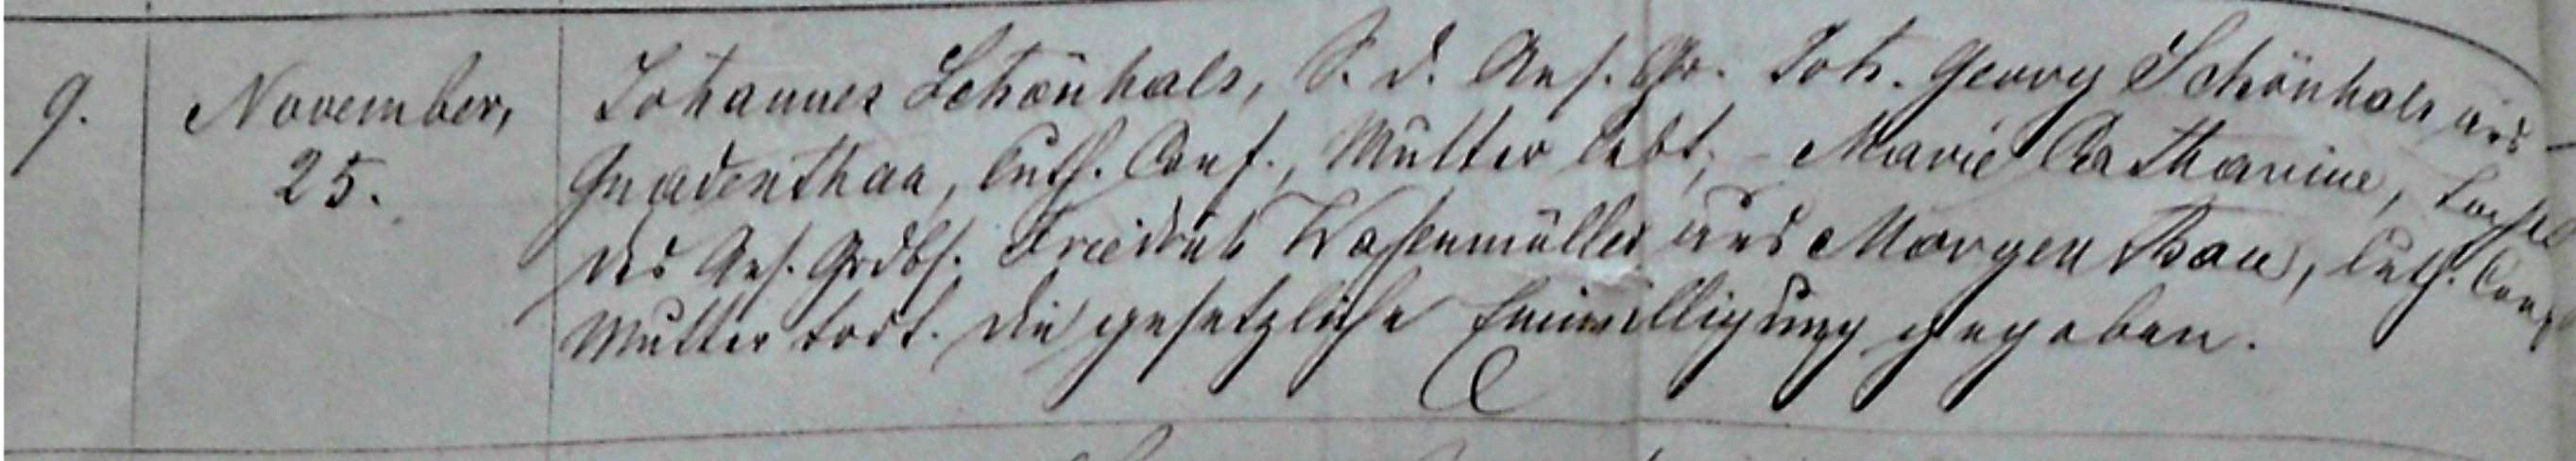 9. November, Johannes Schönhals, S. d. Ans. Gr. Joh. Georg Schönhals aus
25. Gnadenthau, luth. Conf., Mutter lebt, - Marie Catharine, Tochter
des Ans. Grdbs. Friedrich Wasenmüller aus Morgenthau, luth. Conf
Mutter todt. Die gesetzliche Einwilligung gegeben.